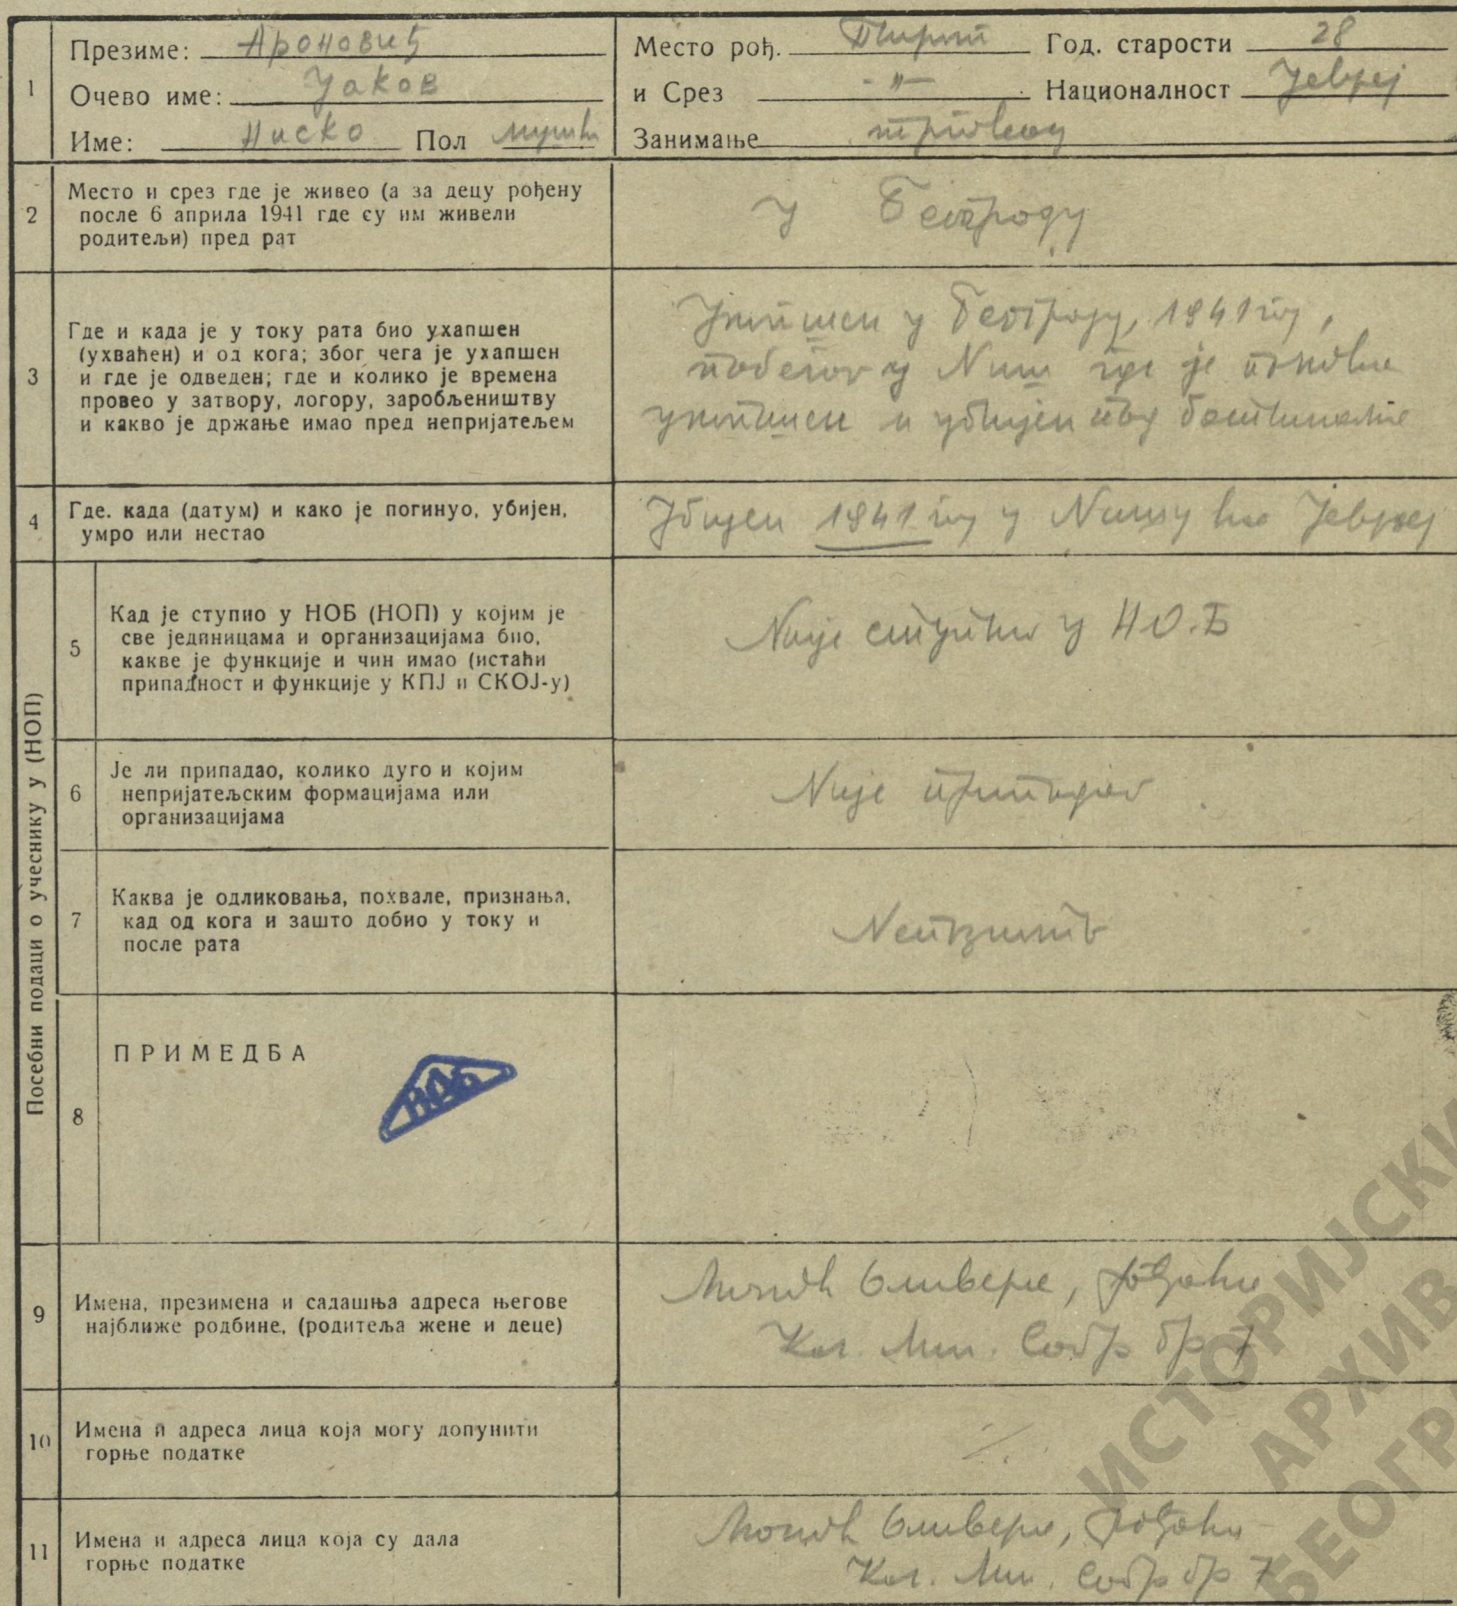 1
Презиме: Ароновић
Очево име: Јаков
Име: Ниско Пол мушки
Место рођ. Пирот Год. старости 28
и Срез -〃- Националност Јевреј
Занимање трговац
2
Место и срез где је живео (а за децу рођену
после 6 априла 1941 где су им живели
родитељи) пред рат
у Београду
3
Где и када је у току рата био ухапшен
(ухваћен) и од кога; због чега је ухапшен
и где је одведен; где и колико је времена
провео у затвору, логору, заробљеништву
и какво је држање имао пред непријатељем
Ухапшен у Београду, 1941 год,
побегао у Ниш где је поново
ухапшен и убијен
4
Где. када (датум) и како је погинуо, убијен,
умро или нестао
Убијен 1941 год у Нишу као Јевреј
Посебни подаци о учеснику у (НОП)
5
Кад је ступио у НОБ (НОП) у којим је
све јединицама и организацијама био,
какве је функције и чин имао (истаћи
припадност и функције у КПЈ и СКОЈ-у)
Није ступио у Н.О.Б
6
Је ли припадао, колико дуго и којим
непријатељским формацијама или
организацијама
Није припадао
7
Каква је одликовања, похвале, признања,
кад од кога и зашто добио у току и
после рата
Непознато
8
ПРИМЕДБА
9
Имена, презимена и садашња адреса његове
најближе родбине, (родитеља жене и деце)
Оливера, рођака
бр 7
10
Имена и адреса лица која могу допунити
горње податке
/.
11
Имена и адреса лица која су дала
горње податке
Оливера, рођака
бр 7
ИСТОРИЈСКИ
АРХИВ
БЕОГР